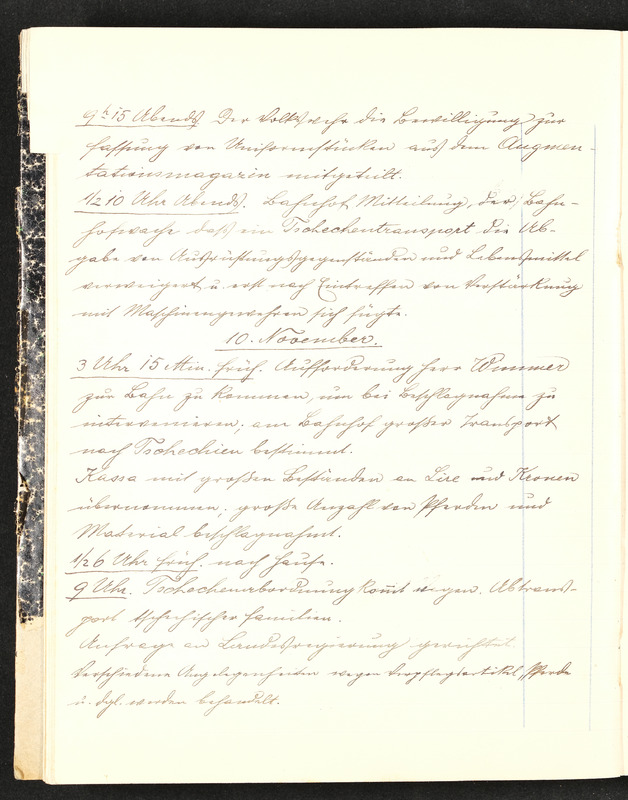 9h 15 Abends. Der Volkswehr die Bewilligung zur
Fassung von Uniformstücken aus dem Augmen-
tationsmagazin mitgeteilt.
1/2 10 Uhr Abends. Bahnhof Mitteilung, der Bahn-
hofwache daß ein Tschechentransport die Ab-
gabe von Ausrüstungsgegenständen und Lebensmittel
verweigert u. erst nach Eintreffen von Verstärkung
mit Maschinengewehren sich fügte.
10. November.
3 Uhr 15 Min. früh. Aufforderung Herr Wimmer
zur Bahn zu kommen, um bei Beschlagnahme zu
intervenieren; am Bahnhof großer Transport
nach Tschechien bestimmt.
Kassa mit großen Beständen an Lire und Kronen
übernommen, große Anzahl von Pferden und
Material beschlagnahmt.
1/2 6 Uhr früh. nach Hause.
9 Uhr. Tschechenabordnung kom̄t wegen. Abtrans-
port tschechischer Familien.
Anfrage an Landesregierung gerichtet.
Verschiedene Angelegenheiten wegen Verpflegsartikel, Pferde
u. dgl. werden behandelt.